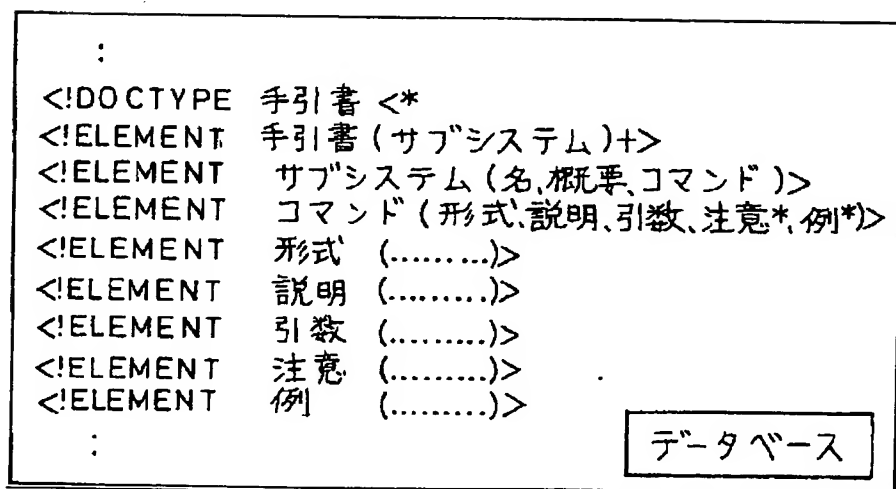 :
<!DOCTYPE 手引書 <*
<!ELEMENT 手引書(サブシステム)+>
<!ELEMENT サブシステム(名、概要、コマンド)>
<!ELEMENT コマンド(形式、説明、引数、注意*、例*)>
<!ELEMENT 形式 (.........)>
<!ELEMENT 説明 (.........)>
<!ELEMENT 引数 (.........)>
<!ELEMENT 注意 (.........)>
<!ELEMENT 例 (.........)>
:
データベース